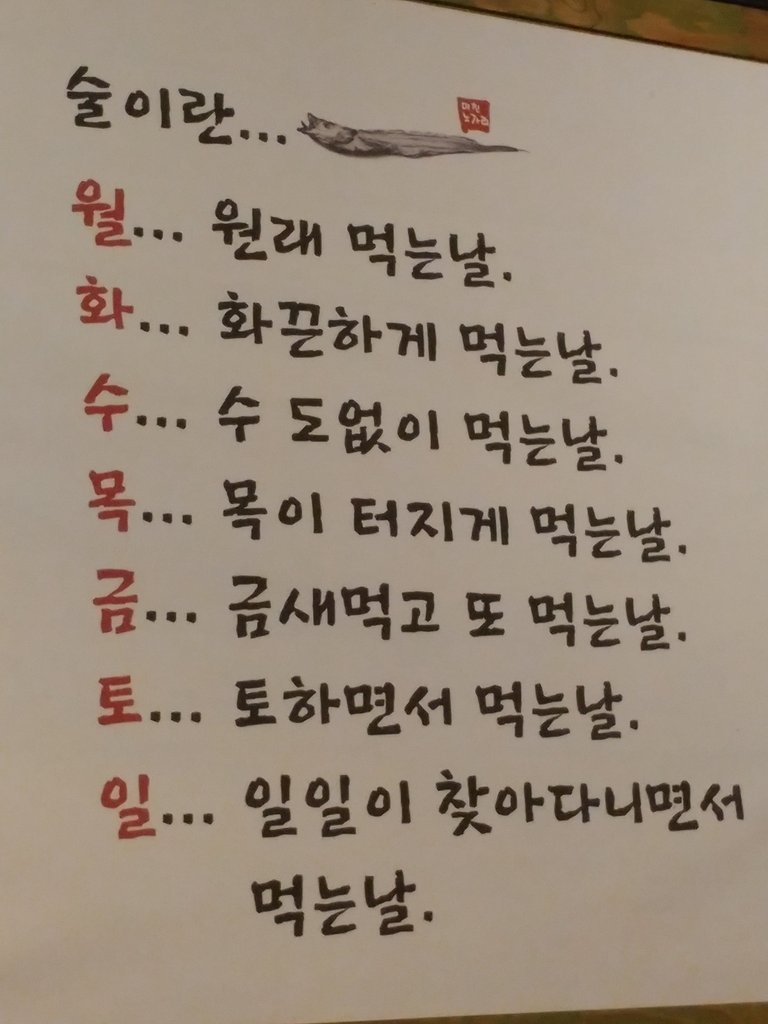 술이란...
미친
노가리
월... 원래 먹는날.
화... 화끈하게 먹는날.
수... 수 도없이 먹는날.
목... 목이 터지게 먹는날.
금... 금새먹고 또 먹는날.
토... 토하면서 먹는날.
일... 일일이 찾아다니면서
먹는날.